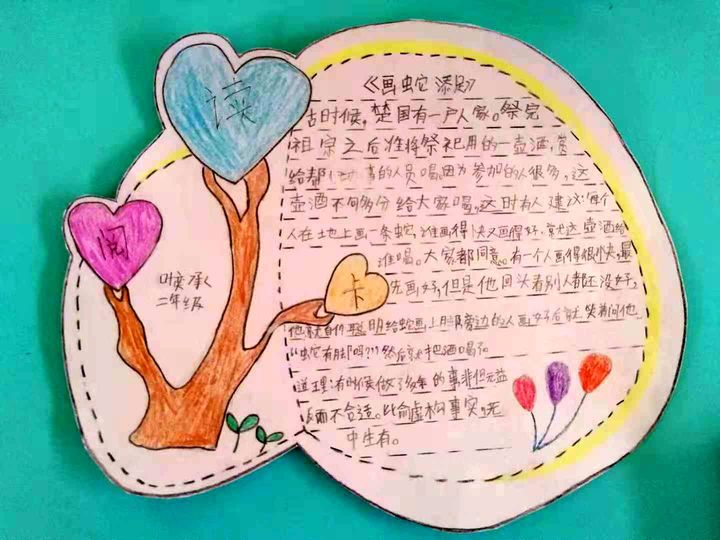 读
阅
卡
叶奕承
二年级
《画蛇添足》
古时候,楚国有一户人家。祭完
祖宗之后准将祭祀用的一壶酒,赏
给帮 的人员喝因为参加的人很多,这
壶酒不够分给大家喝,这时有人建议:每个
人在土地上画一条蛇,谁画得快又画得好,就把这壶酒给
谁喝。大家都同意。有一个人画得很快,最
先画好,但是他回头看别人都还没好,
他就自作聪明给蛇画上脚旁边的人画好后就笑着问他
“蛇有脚吗?”然后就把酒喝了。
道理:有时候做了多年的事非但无益
反而不合适。比喻虚构事实,无
中生有。